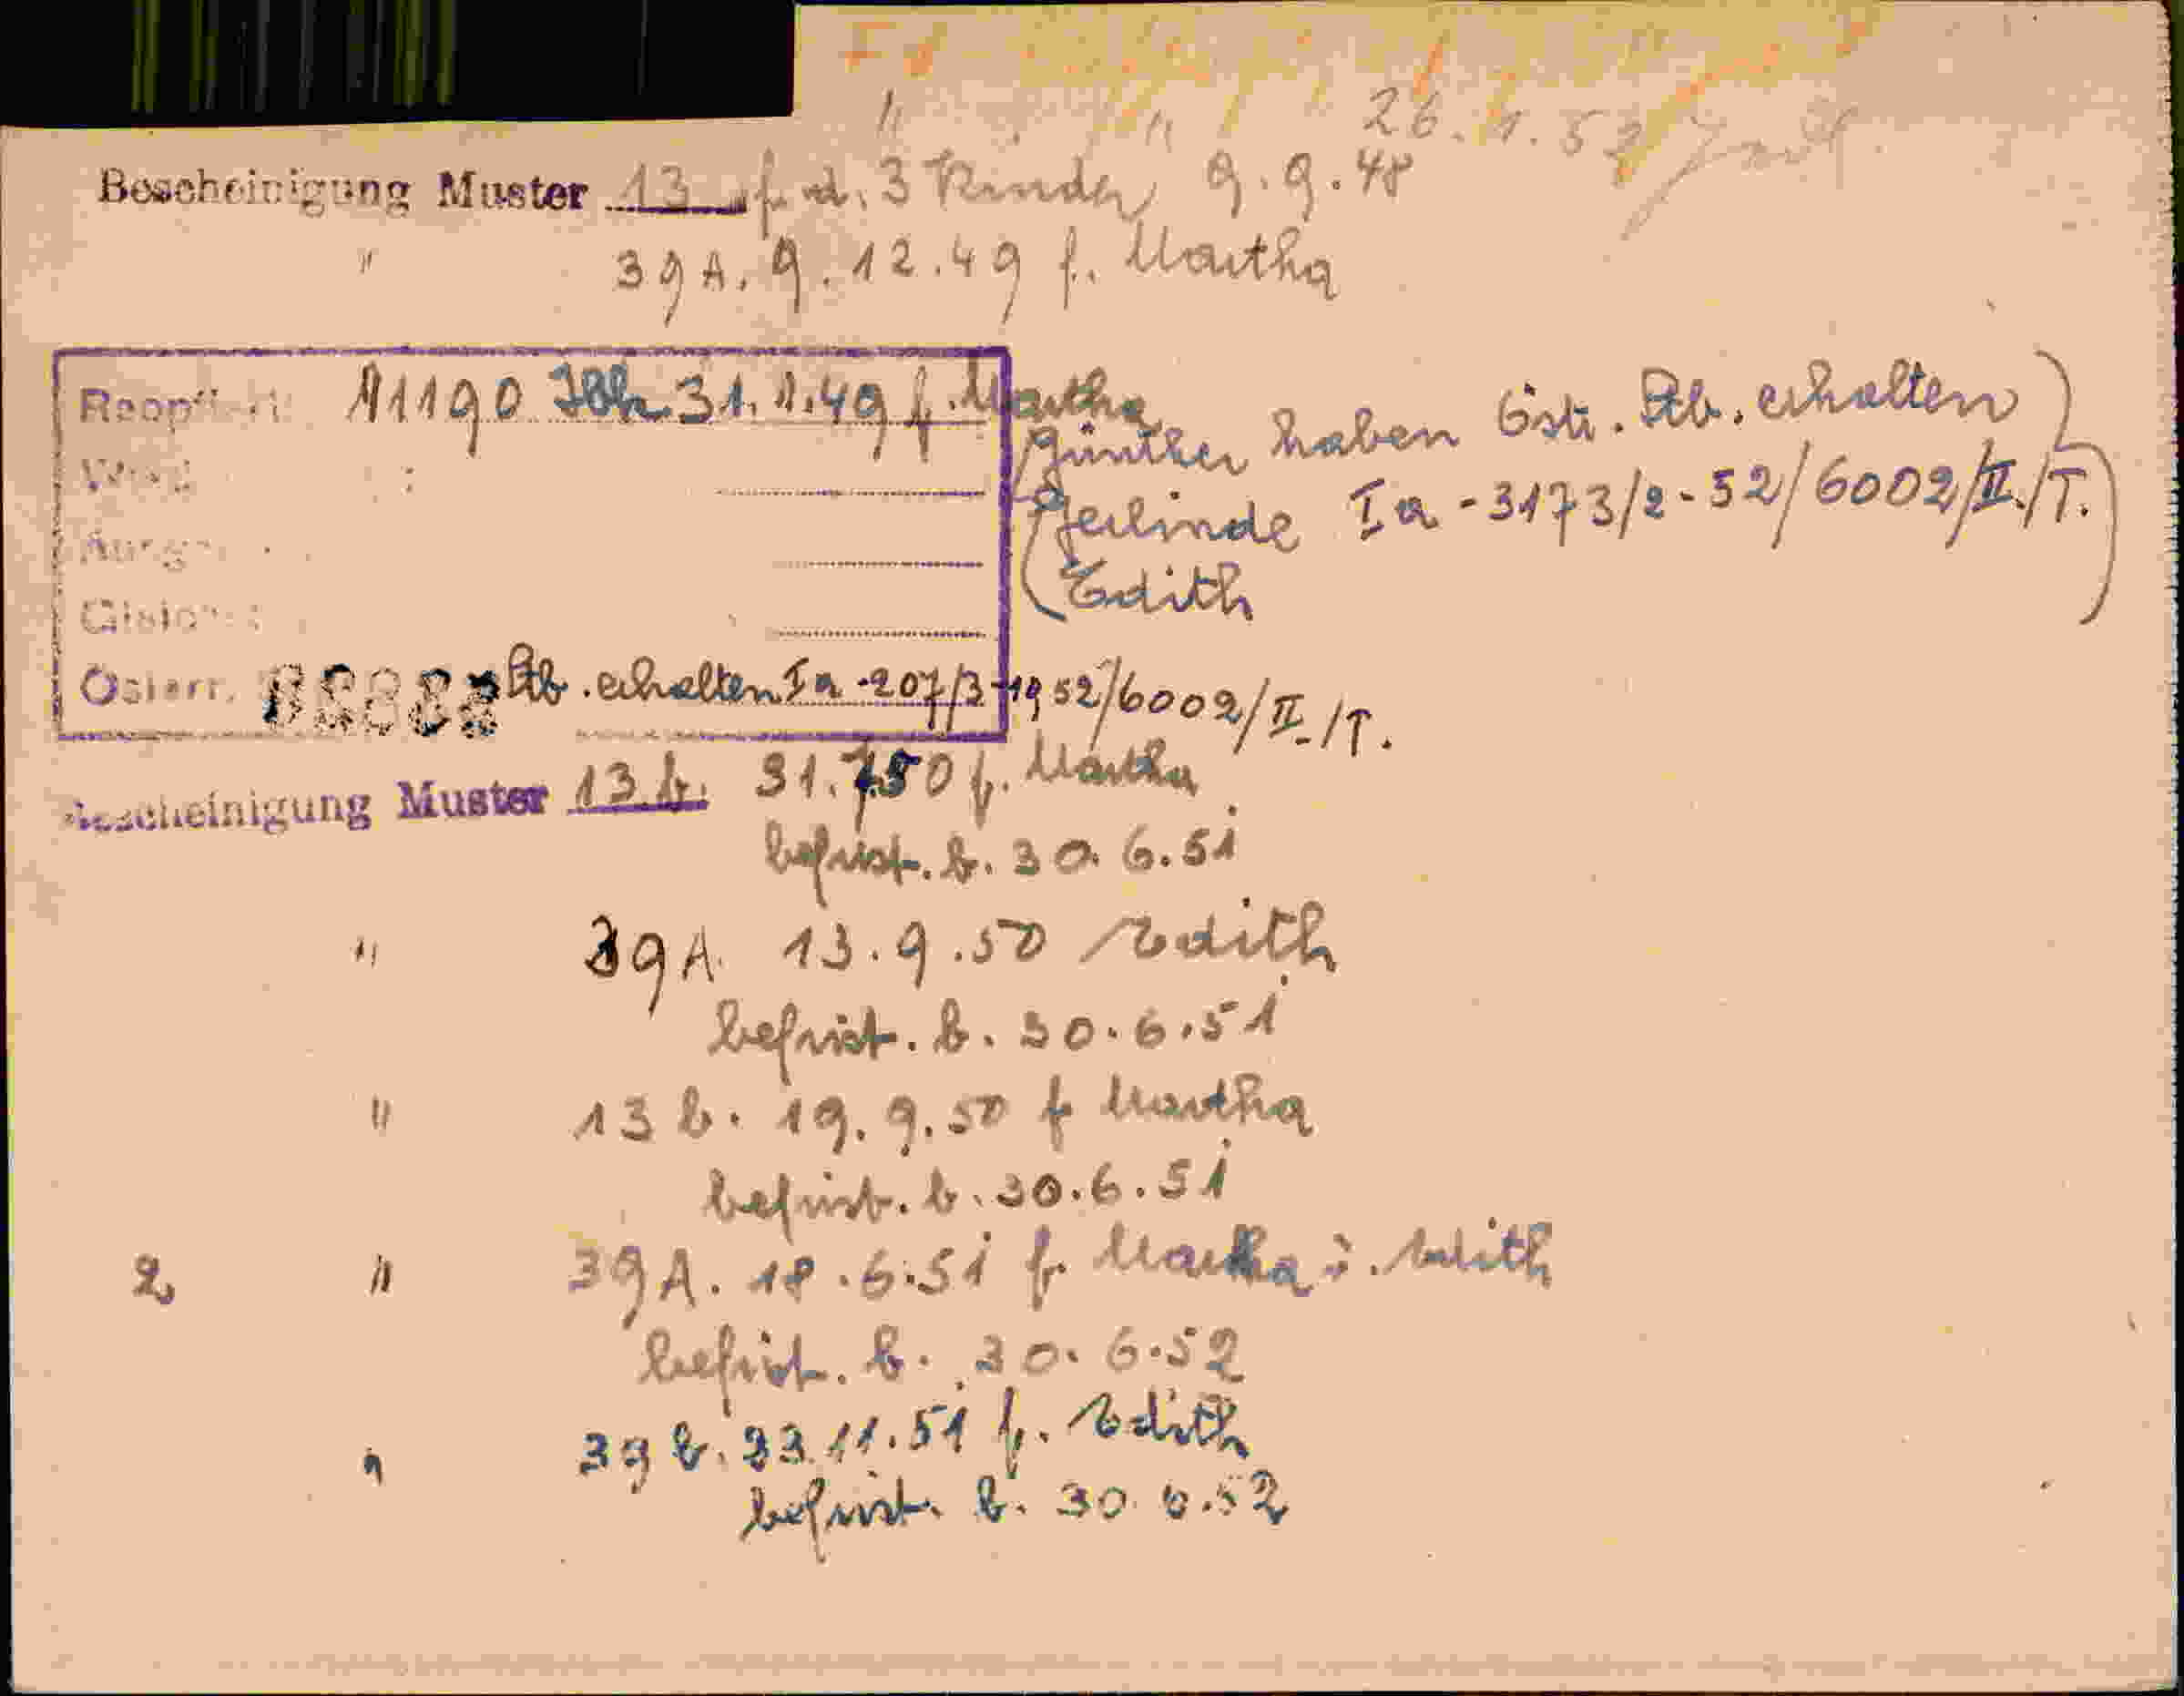 " " 26.1.52
Bescheinigung Muster 13 f. d. 3 Kinder 9.9.48
" 39A. 9.12.49 f. Martha
A1190 31.1.49 f. Martha
Günther haben östr. Stb. erhalten
Gerlinde Ia-3173/2-52/6002/II./T.
Edith
Österr. Stb. erhalten Ia-207/3-1952/6002/II./T.
Bescheinigung Muster 13 b. 31.7.50 f. Martha
befrist. b. 30.6.51
" 39A. 13.9.50 Edith
befrist. b. 30.6.51
" 13 b. 19.9.50 f Martha
befrist. b. 30.6.51
2 " 39A. 18.6.51 f. Martha Edith
befrist. b. 30.6.52
" 39 b. 23.11.51 f. Edith
befrist. b. 30.6.52